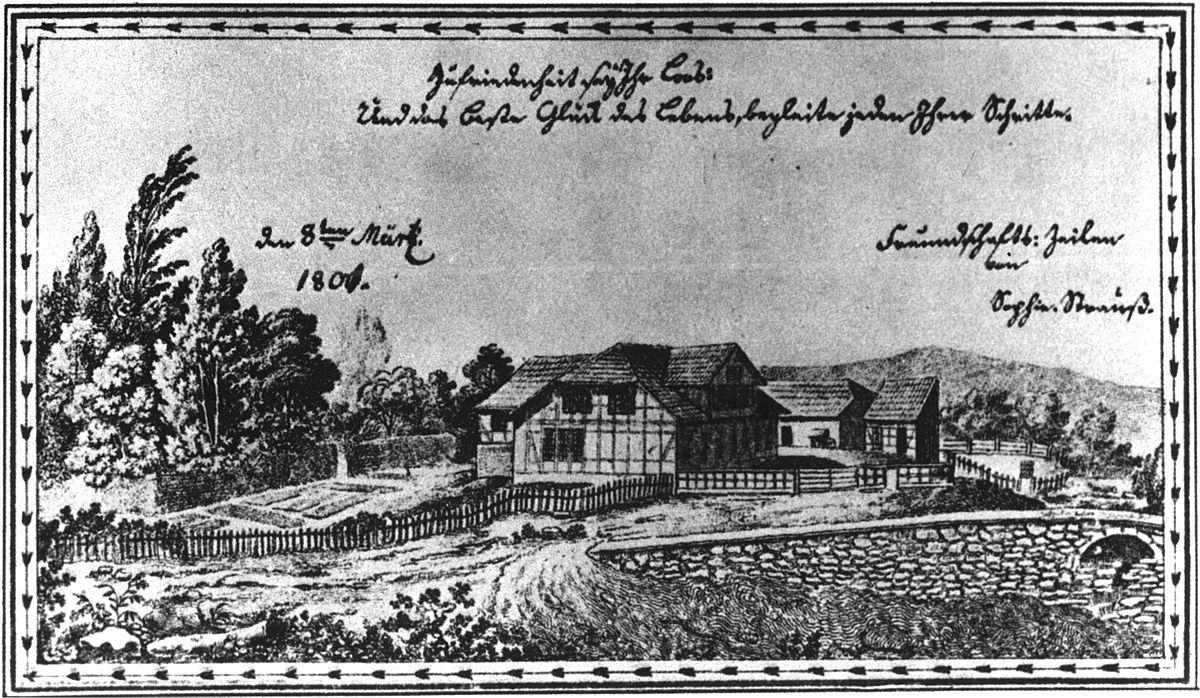 Zufriedenheit sey Ihr Loos:
Und das beste Glück des Lebens, begleite jeden Ihrer Schritte.
den 8ten März.
1801.
Freundschafts: Zeilen
von
Sophie. Strauß.